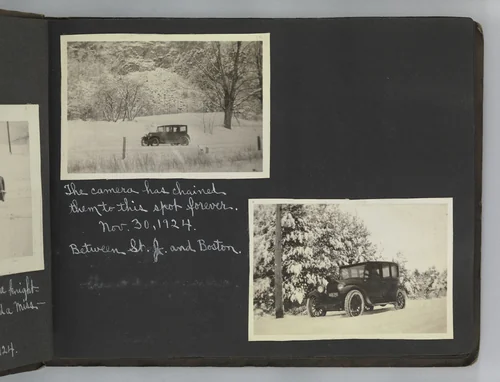 The camera has chained
them to this spot forever.
Nov. 30, 1924.
Between St. J. and Boston.
Knight
Miss-
24.